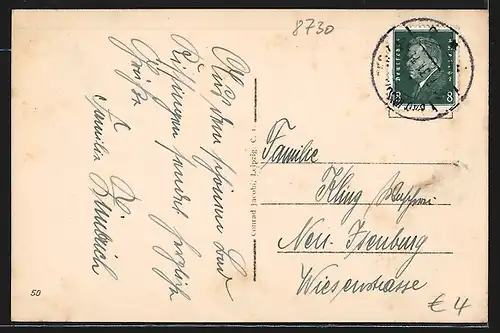 8730
Aus dem schönen Bad
Kissingen sendet herzliche
Grüße
Familie
Conrad Jacobi, Leipzig C. 1.
Deutsches Reich
8 8
Familie
Kling
Neu-Isenburg
Wiesenstrasse
50
€ 4